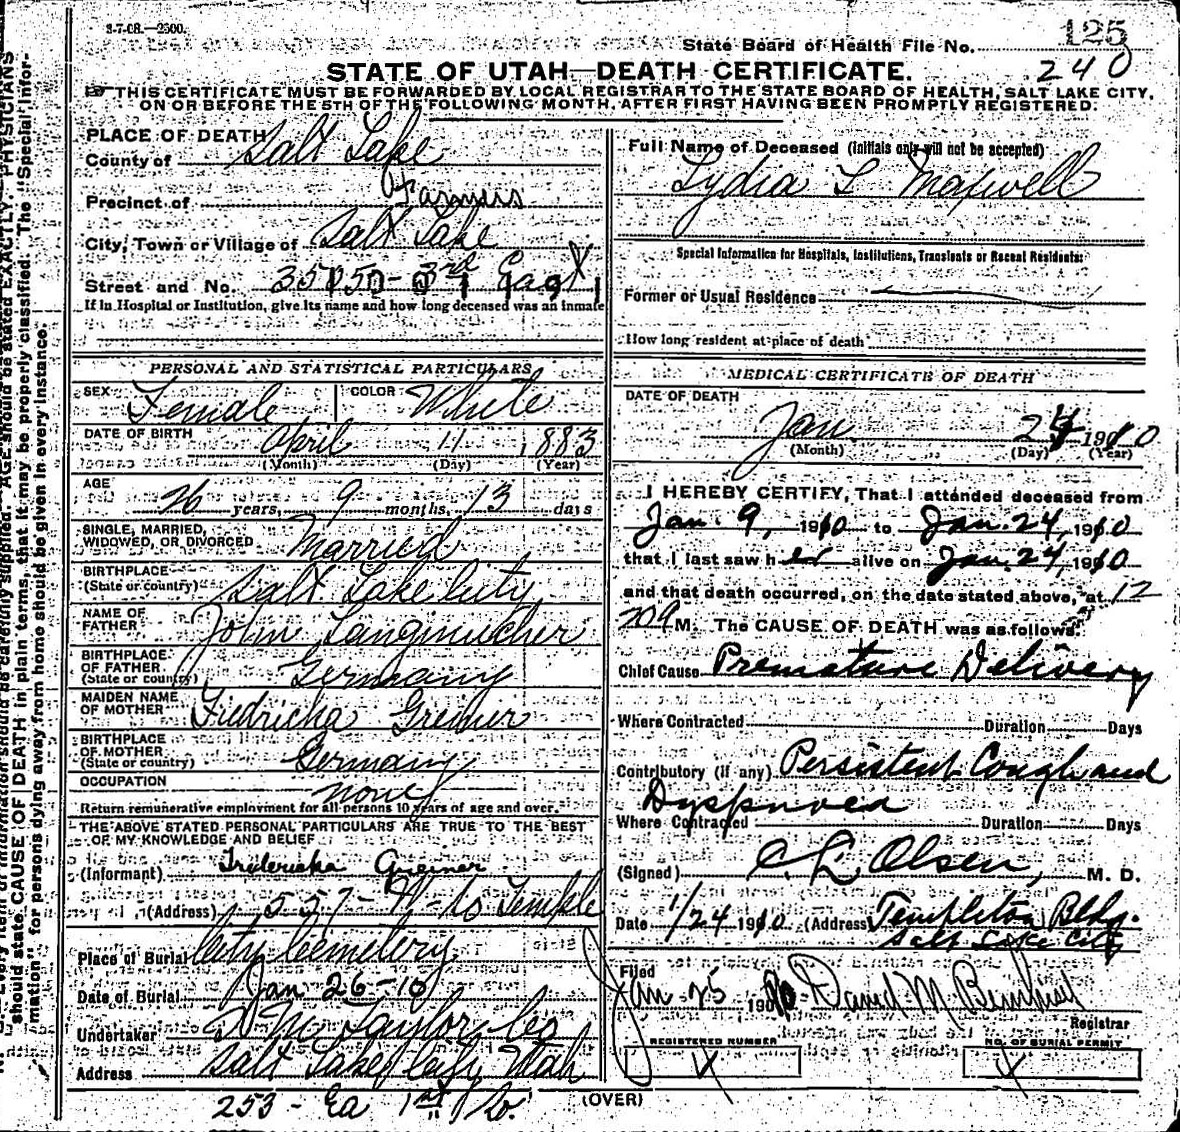 3-7-08.—2500.
125
State Board of Health File No. 240
STATE OF UTAH—DEATH CERTIFICATE.
THIS CERTIFICATE MUST BE FORWARDED BY LOCAL REGISTRAR TO THE STATE BOARD OF HEALTH, SALT LAKE CITY,
ON OR BEFORE THE 5TH OF THE FOLLOWING MONTH, AFTER FIRST HAVING BEEN PROMPTLY REGISTERED.
PLACE OF DEATH
County of Salt Lake
Precinct of Farmers
City, Town or Village of Salt Lake
Street and No. 3rd East
If in Hospital or Institution, give its name and how long deceased was an inmate
PERSONAL AND STATISTICAL PARTICULARS
SEX Female COLOR White
DATE OF BIRTH April 11, 1883
(Month) (Day) (Year)
AGE
26 years, 9 months, 13 days
SINGLE, MARRIED,
WIDOWED, OR DIVORCED Married
BIRTHPLACE
(State or country) Salt Lake City
NAME OF
FATHER John
BIRTHPLACE
OF FATHER
(State or country) Germany
MAIDEN NAME
OF MOTHER Greiner
BIRTHPLACE
OF MOTHER
(State or country) Germany
OCCUPATION none
Return remunerative employment for all persons 10 years of age and over.
THE ABOVE STATED PERSONAL PARTICULARS ARE TRUE TO THE BEST
OF MY KNOWLEDGE AND BELIEF
(Informant) Fredericka Greiner
(Address) 557- N- So Temple
Place of Burial City Cemetery
Date of Burial Jan 26-10
Undertaker Taylor Co
Address Salt Lake City Utah
253 - Ea 1st So.
Full Name of Deceased (Initials only will not be accepted)
Lydia L Maxwell
Special Information for Hospitals, Institutions, Transients or Recent Residents:
Former or Usual Residence
How long resident at place of death
MEDICAL CERTIFICATE OF DEATH
DATE OF DEATH
Jan 24 1910
(Month) (Day) (Year)
I HEREBY CERTIFY, That I attended deceased from
Jan. 9, 1910 to Jan. 24, 1910
that I last saw her alive on Jan. 24, 1910
and that death occurred, on the date stated above, at 12
M. The CAUSE OF DEATH was as follows:
Chief Cause Premature Delivery
Where Contracted Duration Days
Contributory (if any) Persistent Cough and
Dyspnoea
Where Contracted Duration Days
(Signed) C. L. Olsen, M. D.
Date 1/24 1910 (Address Templeton Bldg.
Salt Lake City
Filed
Jan 25 190 David M.
Registrar
REGISTERED NUMBER
NO. OF BURIAL PERMIT
(OVER)
should state CAUSE OF DEATH in plain terms, that it may be properly classified. The "Special Infor-
mation" for persons dying away from home should be given in every instance.